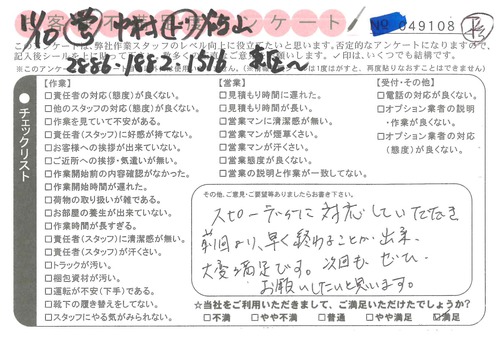 お客様不満足度アンケート
11/10 営 中村
NR 049108
2886-1582-1516
このアンケートは、弊社作業スタッフのレベル向上に役立てたいと思います。否定的なアンケートになりますので、
チェックリスト
【作業】
□責任者の対応(態度)が良くない。
□他のスタッフの対応(態度)が良くない。
□作業を見ていて不安がある。
□責任者(スタッフ)に好感が持てない。
□お客様への挨拶が出来ていない。
□ご近所への挨拶・気遣いが無い。
□作業開始前の内容確認がなかった。
□作業開始時間が遅れた。
□荷物の取り扱いが雑である。
□お部屋の養生が出来ていない。
□作業時間が長すぎる。
□責任者(スタッフ)に清潔感が無い。
□責任者(スタッフ)が汗くさい。
□トラックが汚い。
□梱包資材が汚い。
□運転が不安(下手)である。
□靴下の履き替えをしてない。
□スタッフにやる気がみられない。
【営業】
□見積もり時間に遅れた。
□見積もり時間が長い。
□営業マンに清潔感が無い。
□営業マンが煙草くさい。
□営業マンが汗くさい。
□営業態度が良くない。
□営業の説明と作業が一致してない。
【受付・その他】
□電話の対応が良くない。
□オプション業者の説明
・作業が良くない。
□オプション業者の対応
(態度)が良くない。
その他、ご意見・ご要望等ありましたらお書き下さい。
スピーディーに対応していただき
前回より、早く終わることが出来、
大変満足です。次回も、ぜひ
お願いしたいと思います。
☆当社をご利用いただきまして、ご満足いただけたでしょうか?
□不満 □やや不満 □普通 □やや満足 ☑満足